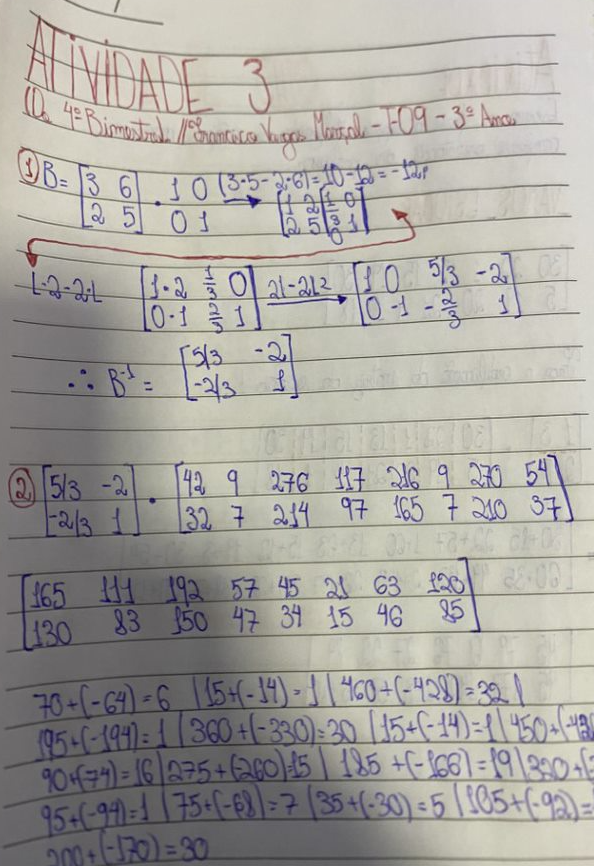 ATIVIDADE 3
4º Bimestral // Francisca Vargas - T-09 - 3º Ano
① B= [3 6 · 1 0 (3·5-2·6)=10-12=-12
2 5] 0 1 [1 2 1/3 0
2 5 0 1]
L·2-2·L [1·2 1/3 0 2L-2L2 [1 0 5/3 -2
0·1 2/3 1] 0 -1 -2/3 1]
∴ B⁻¹= [5/3 -2
-2/3 1]
② [5/3 -2 · [42 9 276 117 216 9 270 54
-2/3 1] 32 7 214 97 165 7 210 37]
[165 111 192 57 45 21 63 120
130 83 150 47 34 15 46 85]
70+(-64)=6 | 15+(-14)=1 | 460+(-428)=32 |
195+(-194)=1 | 360+(-330)=30 | 15+(-14)=1 | 450+(-42
90+(74)=16 | 275+(260)=15 | 185+(-166)=19 | 320+(
95+(-94)=1 | 75+(-68)=7 | 35+(-30)=5 | 105+(-92)=
200+(-170)=30